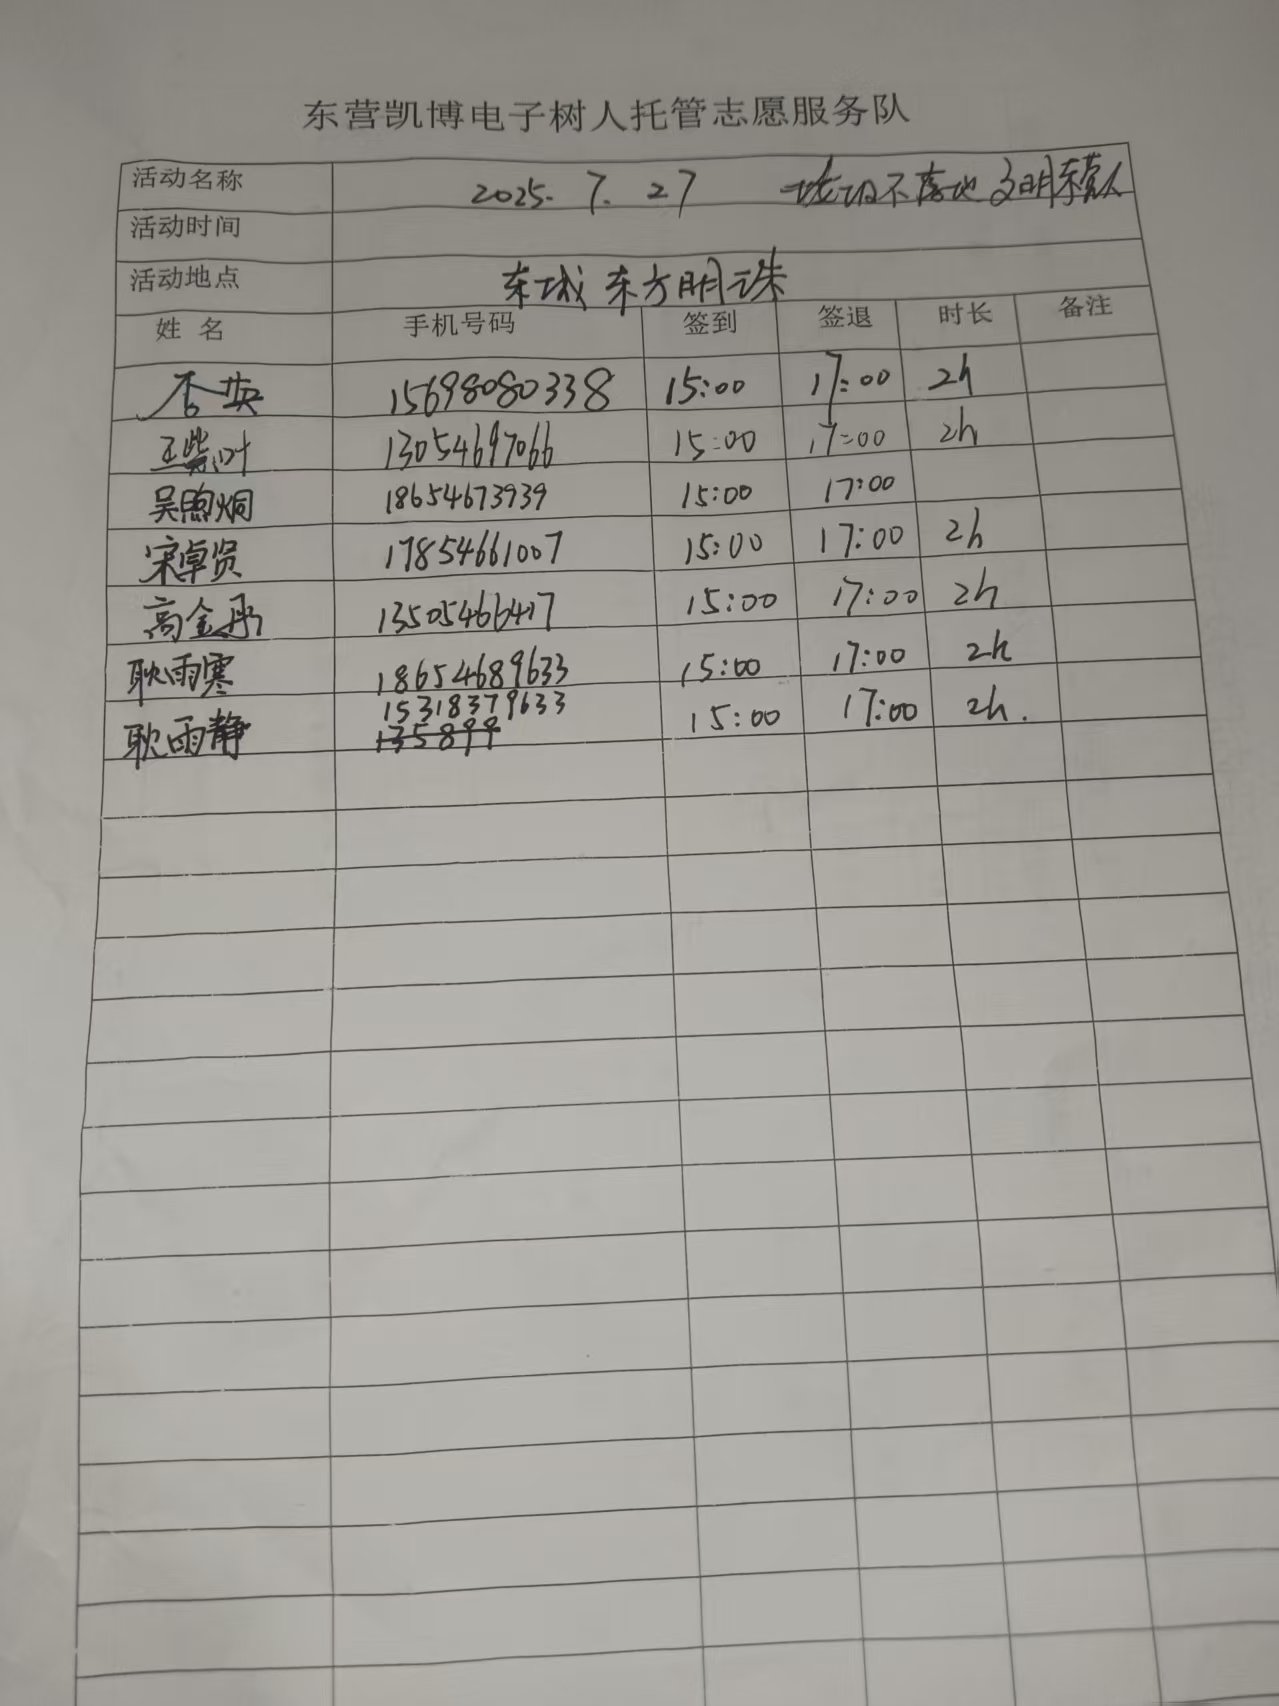 东营凯博电子树人托管志愿服务队
活动名称 2025. 7. 27 垃圾不落地 文明东营人
活动时间
活动地点 东城 东方明珠
姓 名 手机号码 签到 签退 时长 备注
英 15698080338 15:00 17:00 2h
王紫叶 13054697066 15:00 17:00 2h
吴煦烔 18654673939 15:00 17:00
宋卓贤 17854661007 15:00 17:00 2h
高金彤 13505466417 15:00 17:00 2h
耿雨寒 18654689633 15:00 17:00 2h
耿雨静 15318379633 15:00 17:00 2h.
135899